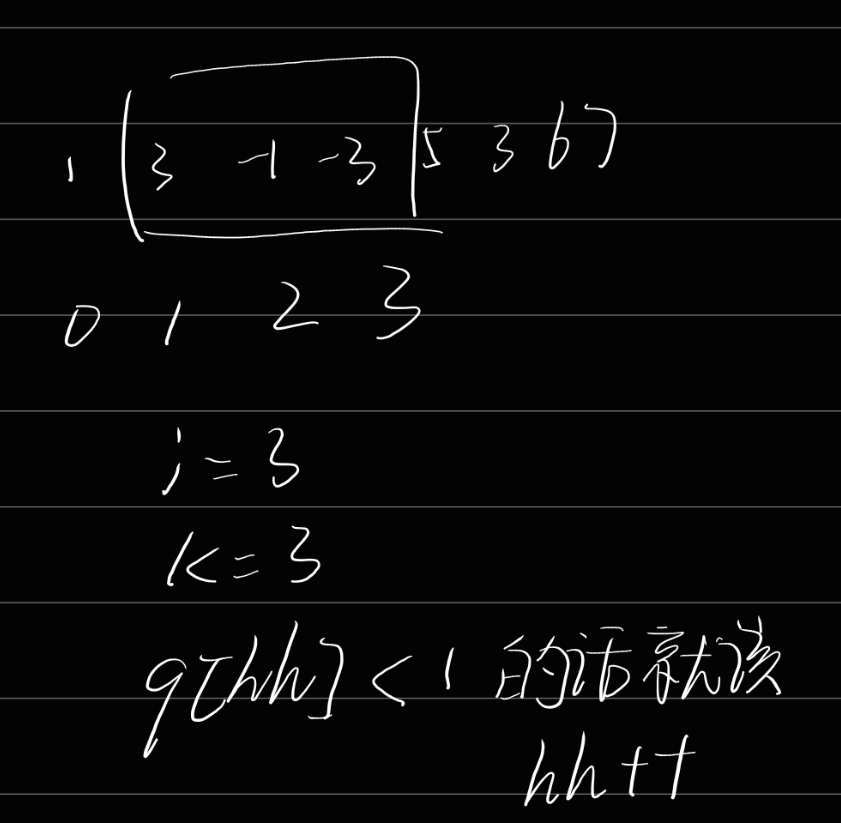 1 3 -1 -3 5 3 6 7
0 1 2 3
i = 3
k = 3
q[hh] < 1 的话就该
hh++